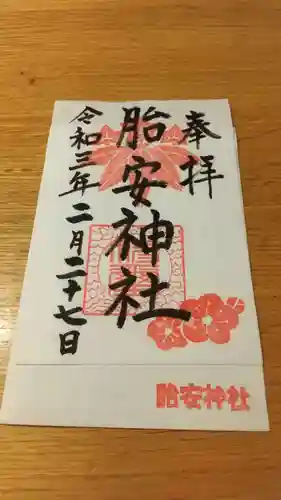 奉拝
胎安神社
令和三年
二月二十七日
胎安神社